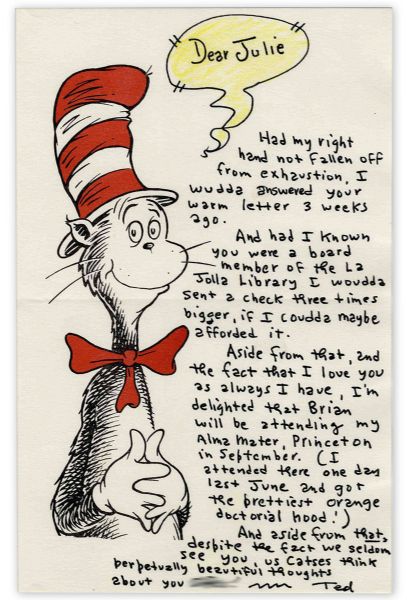 Dear Julie
Had my right
hand not fallen off
from exhaustion, I
wudda answered your
warm letter 3 weeks
ago.
And had I known
you were a board
member of the La
Jolla Library I woudda
sent a check three times
bigger, if I coudda maybe
afforded it.
Aside from that, and
the fact that I love you
as always I have, I'm
delighted that Brian
will be attending my
Alma Mater, Princeton
in September. (I
attended there one day
last June and got
the prettiest orange
doctorial hood!)
And aside from that,
despite the fact we seldom
see you, us Catses think
perpetually beautiful thoughts
about you
Ted